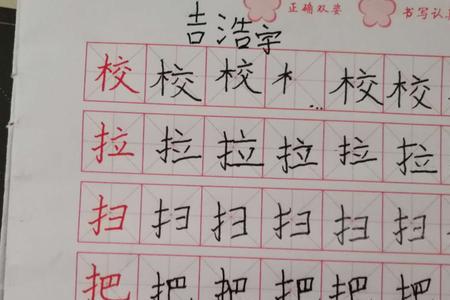 正确双姿 书写认真
吉浩宇
校校校木校校
拉拉拉拉拉拉
扫扫扫扫扫扫
把把把把把把